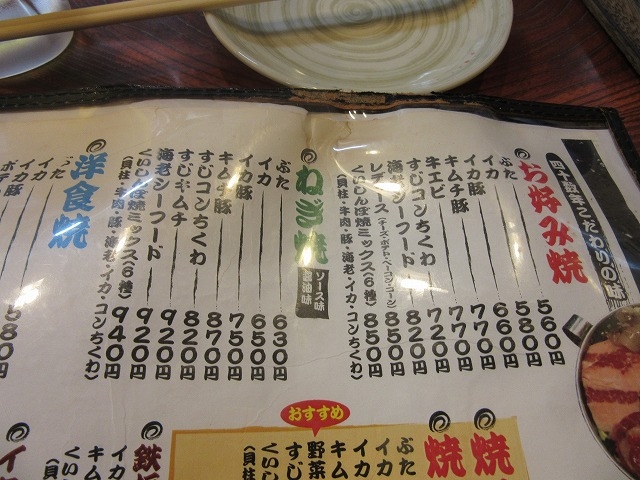 四十数年こだわりの味
お好み焼
ぶた 560円
イカ 580円
イカ豚 660円
キムチ豚 770円
牛エビ 770円
すじコンちくわ 720円
海老シーフード 820円
レデース(チーズ・ポテト・ベーコン・コーン) 850円
くいしんぼ焼ミックス(6種) 850円
(貝柱・牛肉・豚・海老・イカ・コンちくわ)
ねぎ焼
ソース味
醤油味
ぶた 630円
イカ 650円
イカ豚 750円
キムチ豚 870円
すじコンちくわ 820円
すじキムチ 920円
海老シーフード 920円
くいしんぼ焼ミックス(6種) 940円
(貝柱・牛肉・豚・海老・イカ・コンちくわ)
洋食焼
ぶた
イカ
イカ豚
ポテ
580円
おすすめ
焼
焼
ぶた
イカ
イカ
キム
野菜
すじ
くいし
(貝柱
鉄
イカ
キム
くいし
(貝
イ